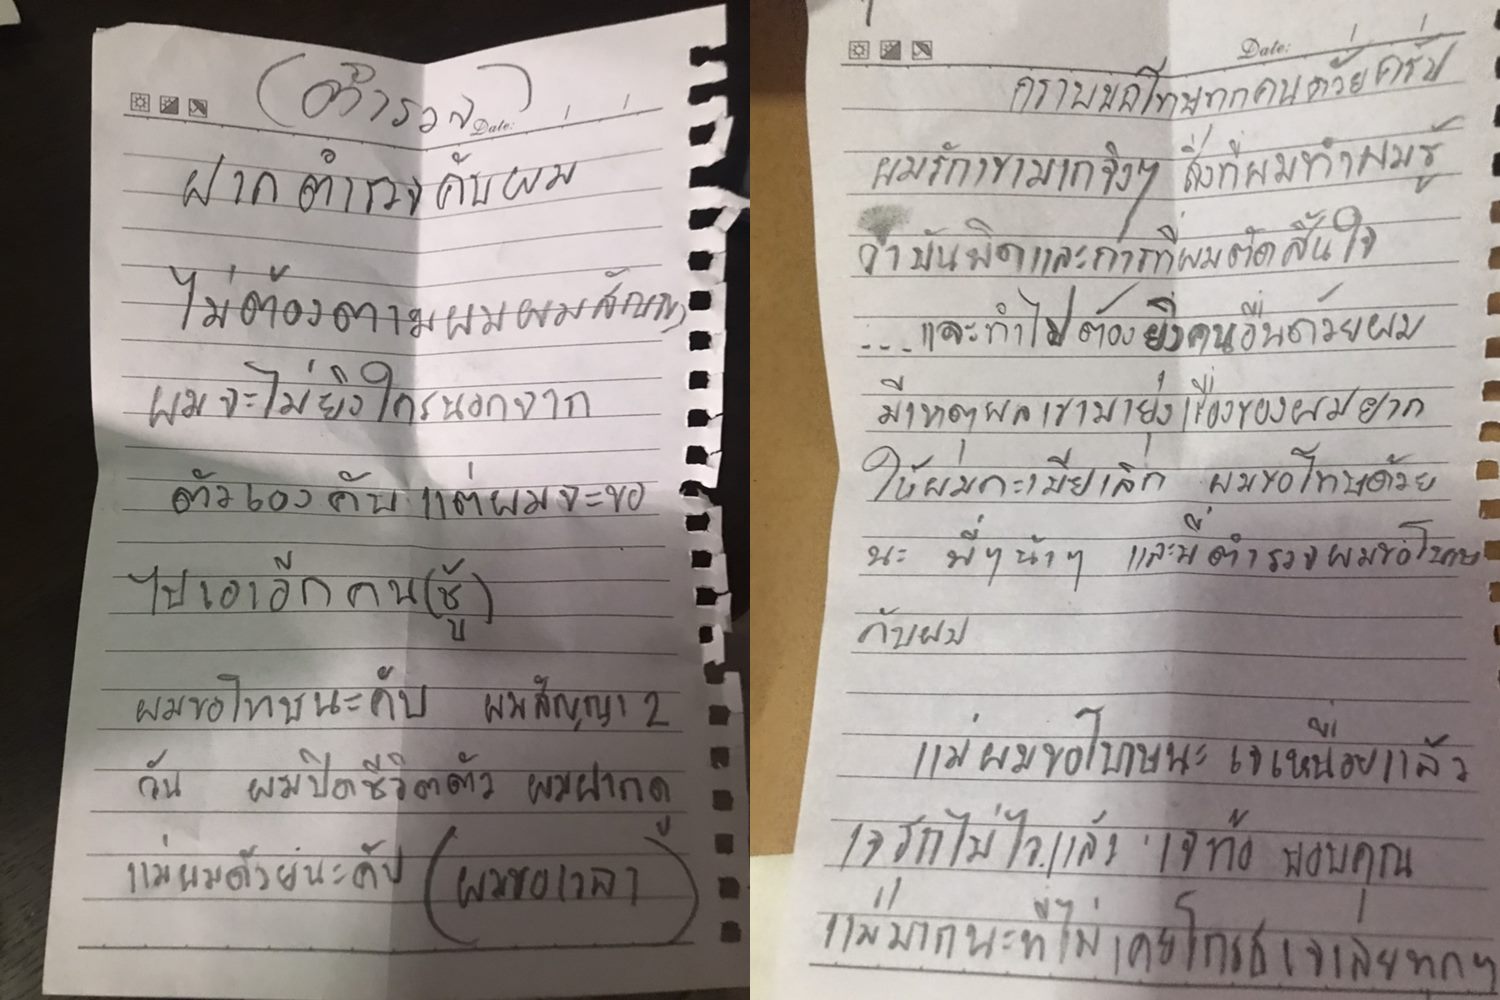 (ตำรวจ)
Date:
ฝากตำรวจคับผม
ไม่ต้องตามผมผมสัญญา
ผมจะไม่ยิงใครนอกจาก
ตัวเองคับ แต่ผมจะขอ
ไปเอาอีกคน(ชู้)
ผมขอโทษนะคับ ผมสัญญา 2
วัน ผมปิดชีวิตตัว ผมฝากดู
แม่ผมด้วยนะคับ (ผมขอเวลา)
Date:
กราบขอโทษทุกคนด้วยครับ
ผมรักเขามากจิงๆ สิ่งที่ผมทำผมรู้
ว่ามันผิดและการที่ผมตัดสินใจ
... และทำไมต้องยิงคนอื่นด้วยผม
มีเหตุผลเขามายุ่งเรื่องของผมยาก
ให้ผมกะเมียเลิก ผมขอโทษด้วย
นะ พี่ๆน้าๆ และพี่ตำรวจผมขอโทษ
คับผม
แม่ผมขอโทษนะ เจเหนื่อยแล้ว
เจรักไม่ไวแล้ว เจท้อ ขอบคุณ
แม่มากนะที่ไม่เคยโกรธเจเลยทุกๆ